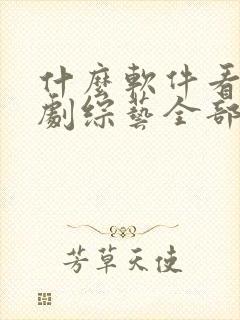 什麼軟件看
劇綜藝全部
芳草天使